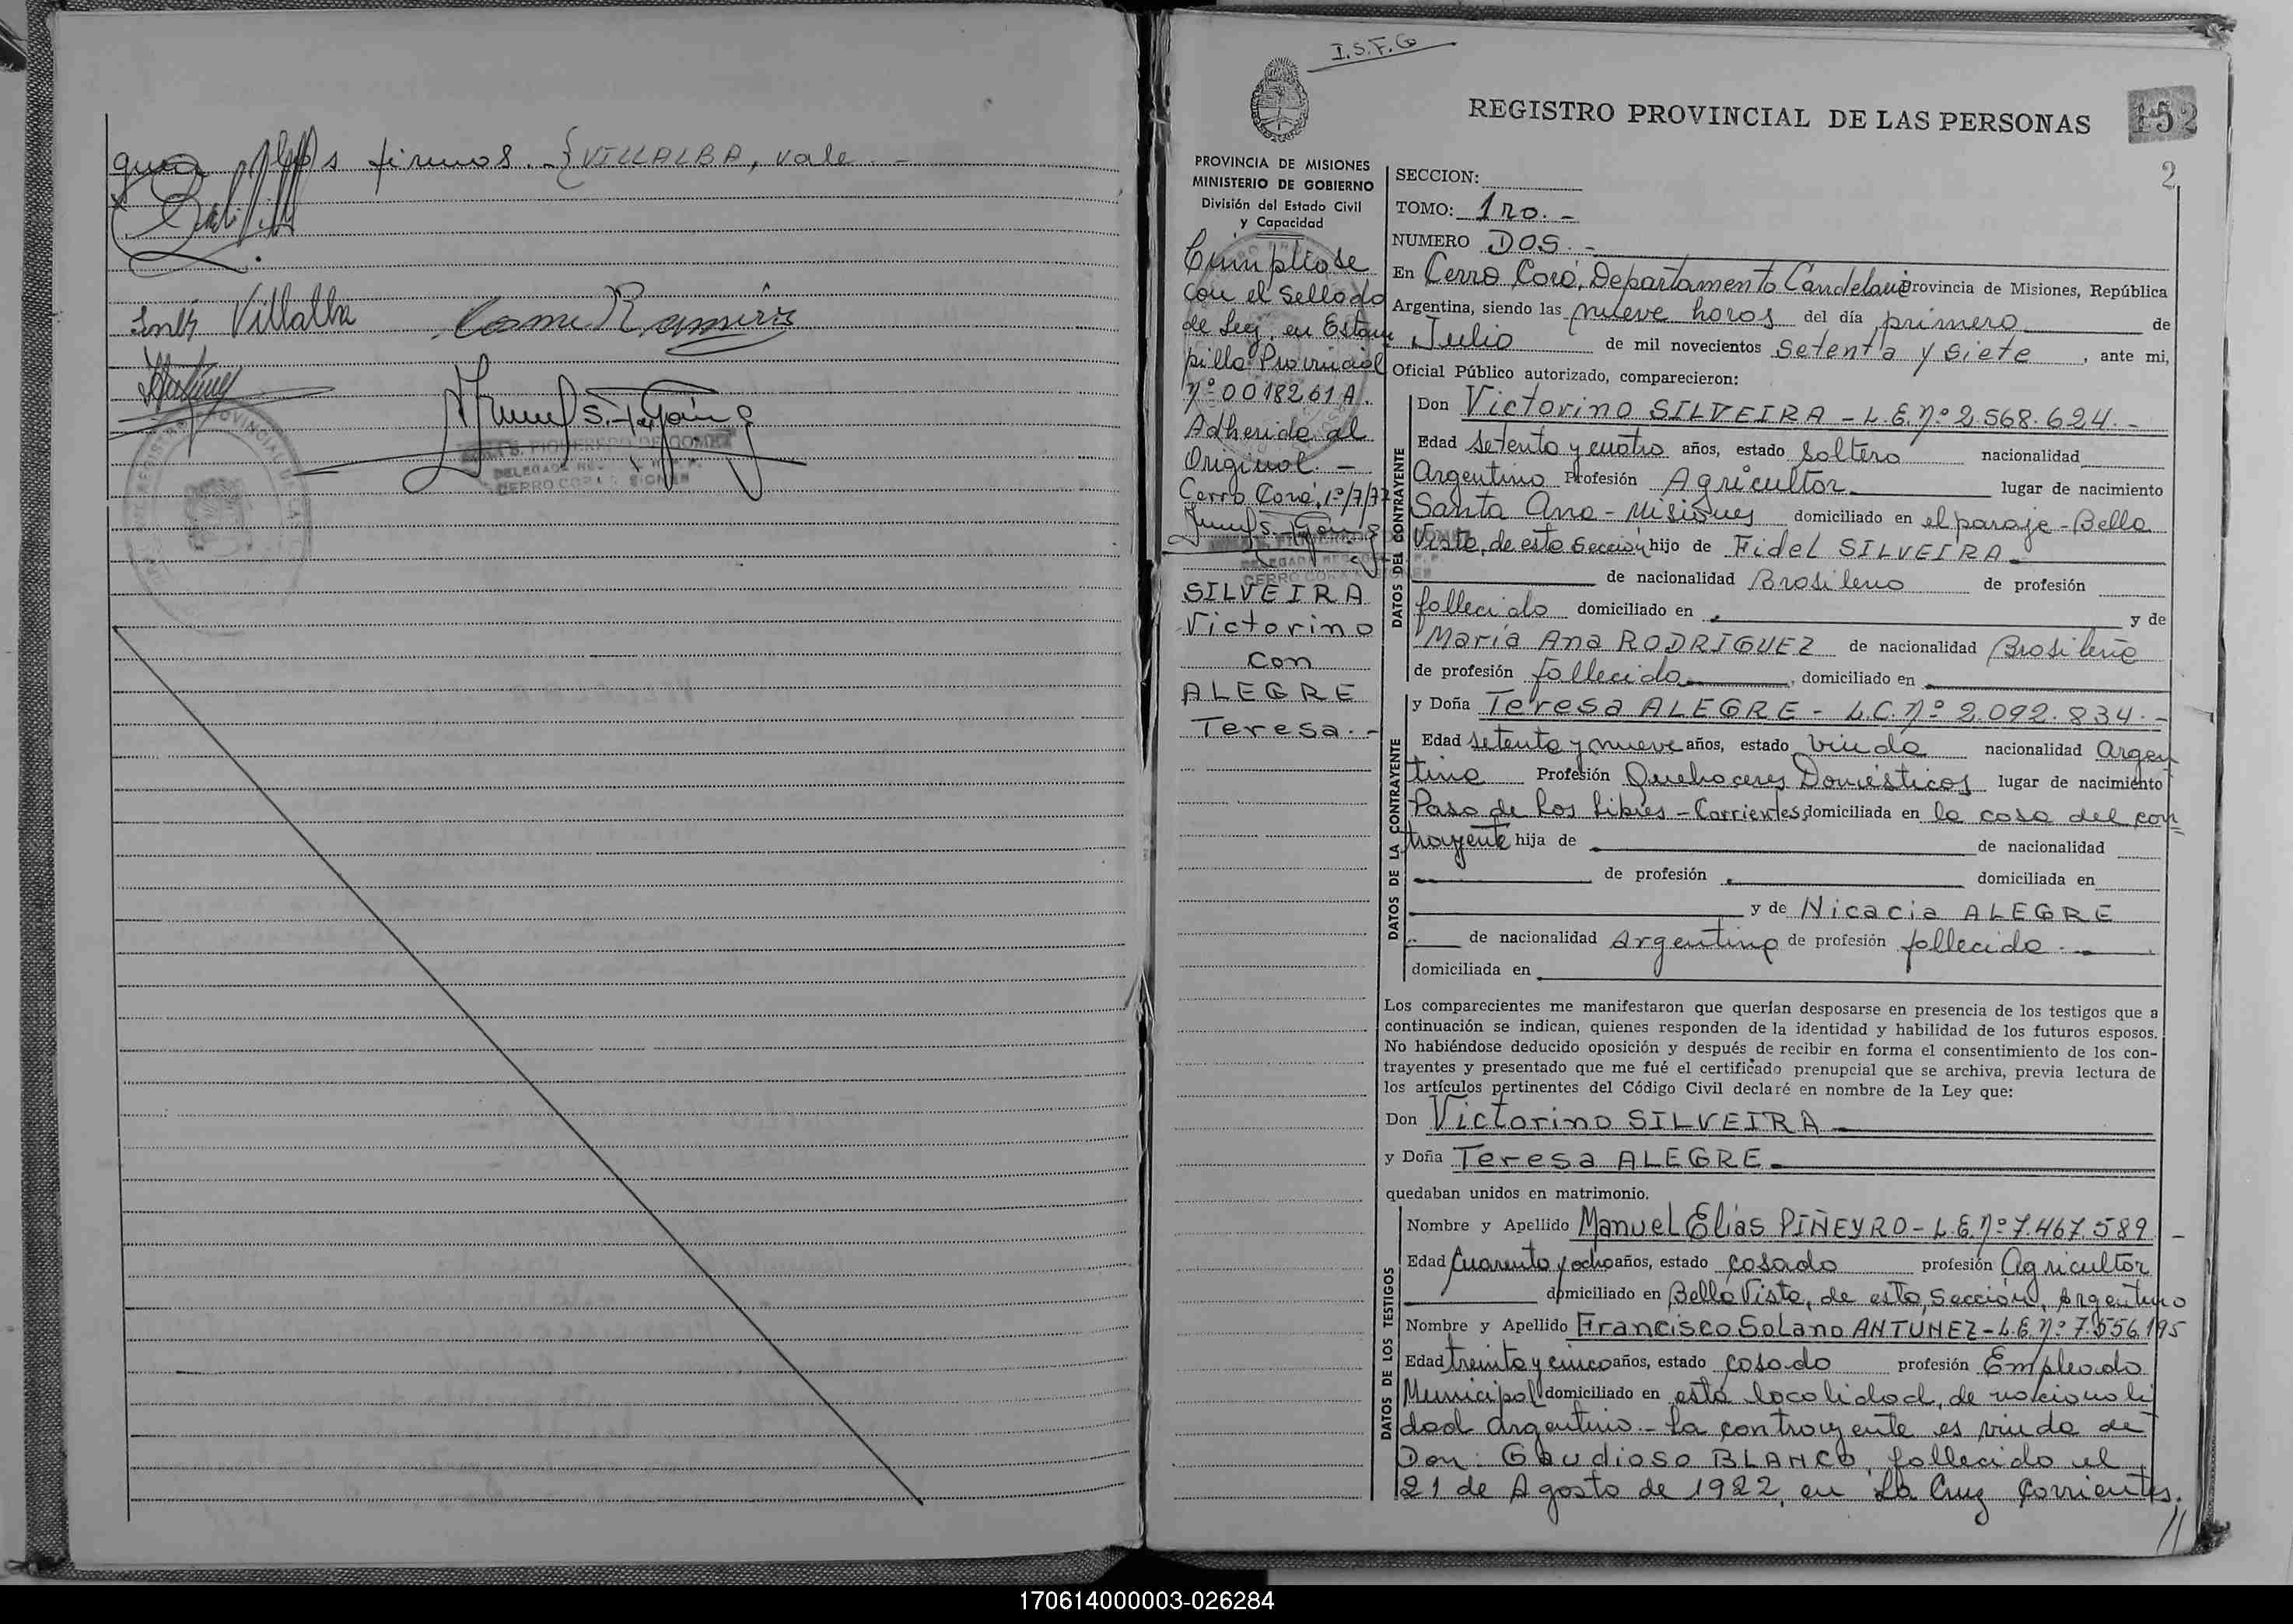 firmos. - } VILLALBA, vale. -
Inés Villalba
DELEGADA
CERRO CORA
I.S.F.G
REGISTRO PROVINCIAL DE LAS PERSONAS
152
2
PROVINCIA DE MISIONES
MINISTERIO DE GOBIERNO
División del Estado Civil
y Capacidad
Cumpliose
con el sellado
de Ley, en Estam
pilla Provincial
nº 0018261 A.
Adherida al
Original. -
Cerro Corá, 1º/7/77
SILVEIRA
Victorino
con
ALEGRE
Teresa. -
SECCION:
TOMO: 1ro. -
NUMERO DOS. -
En Cerro Corá, Departamento Candelaria Provincia de Misiones, República
Argentina, siendo las nueve horas del día primero de
Julio de mil novecientos setenta y siete, ante mi,
Oficial Público autorizado, comparecieron:
DATOS DEL CONTRAYENTE
Don Victorino SILVEIRA - L.E. nº 2.568.624. -
Edad setenta y cuatro años, estado soltero nacionalidad
argentino Profesión Agricultor lugar de nacimiento
Santa Ana - Misiones domiciliado en el paraje - Bella
Vista, de esta Sección hijo de Fidel SILVEIRA
de nacionalidad Brasilena de profesión
fallecido domiciliado en y de
María Ana RODRIGUEZ de nacionalidad Brasileña
de profesión fallecida, domiciliado en
DATOS DE LA CONTRAYENTE
y Doña Teresa ALEGRE - L.C. nº 2.092.834. -
Edad setenta y nueve años, estado viuda nacionalidad argen
tina Profesión Quehaceres Domésticos lugar de nacimiento
Paso de los Libres - Corrientes, domiciliada en la casa del con=
trayente hija de de nacionalidad
de profesión domiciliada en
y de Nicacia ALEGRE
de nacionalidad Argentina de profesión fallecida. -
domiciliada en
Los comparecientes me manifestaron que querían desposarse en presencia de los testigos que a
continuación se indican, quienes responden de la identidad y habilidad de los futuros esposos.
No habiéndose deducido oposición y después de recibir en forma el consentimiento de los con-
trayentes y presentado que me fué el certificado prenupcial que se archiva, previa lectura de
los artículos pertinentes del Código Civil declaré en nombre de la Ley que:
Don Victorino SILVEIRA
y Doña Teresa ALEGRE
quedaban unidos en matrimonio.
DATOS DE LOS TESTIGOS
Nombre y Apellido Manuel Elías PIÑEYRO - L.E. nº 7.467.589 -
Edad Cuarenta y ocho años, estado casado profesión agricultor
domiciliado en Bella Vista, de esta Sección, Argentino
Nombre y Apellido Francisco Solano ANTUNEZ - L.E. nº 7.556.195
Edad treinta y cinco años, estado casado profesión Empleado
Municipal domiciliado en esta localidad, de nacionali
dad argentino. - La contrayente es viuda de
Don: Gaudioso BLANCO, fallecido el
21 de Agosto de 1922, en La Cruz Corrientes.
//
170614000003-026284